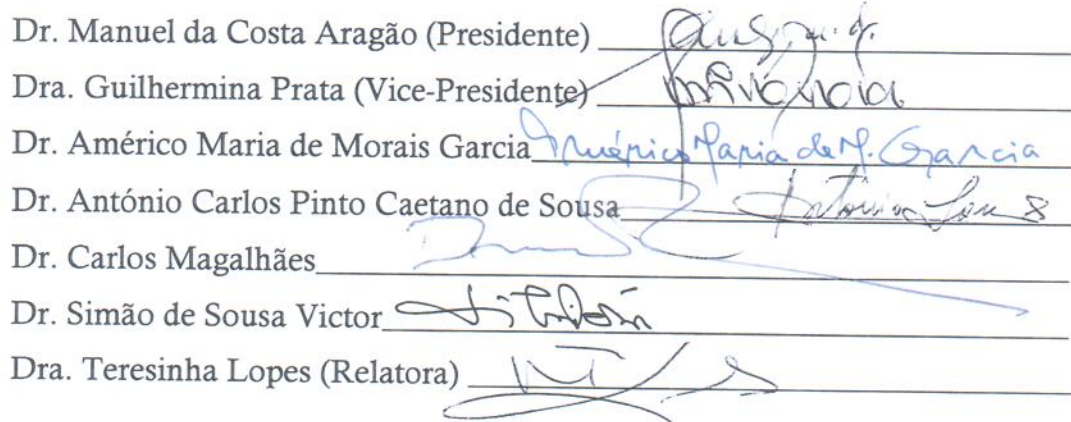 Dr. Manuel da Costa Aragão (Presidente)
Dra. Guilhermina Prata (Vice-Presidente)
Dr. Américo Maria de Morais Garcia Américo Maria de M. Garcia
Dr. António Carlos Pinto Caetano de Sousa
Dr. Carlos Magalhães
Dr. Simão de Sousa Victor
Dra. Teresinha Lopes (Relatora)